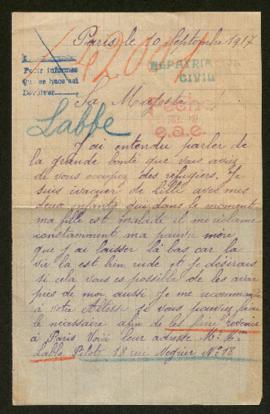 Paris le 10 Septembre 1917
REPATRIACION
CIVIL
Para informes
Devolver
Sa Majesté
Labbe
J'ai entendu parler de
la grande bonté que vous avez
de vous occuper des refugiers. Je
suis évacuer de Lille avec mes
deux enfants qui dans le moment
ma fille est malade il me réclame
constamment ma pauvre mère
que j'ai laisser là bas car la
vie là est bien rude et je désirais
si cela vous es possible de les avoir
près de moi aussi je me recommande
à votre Altesse si vous pouviez faire
le nécessaire afin de les faire revenir
à Paris Voici leur adresse
Labbe 18 rue Négrier N° 18